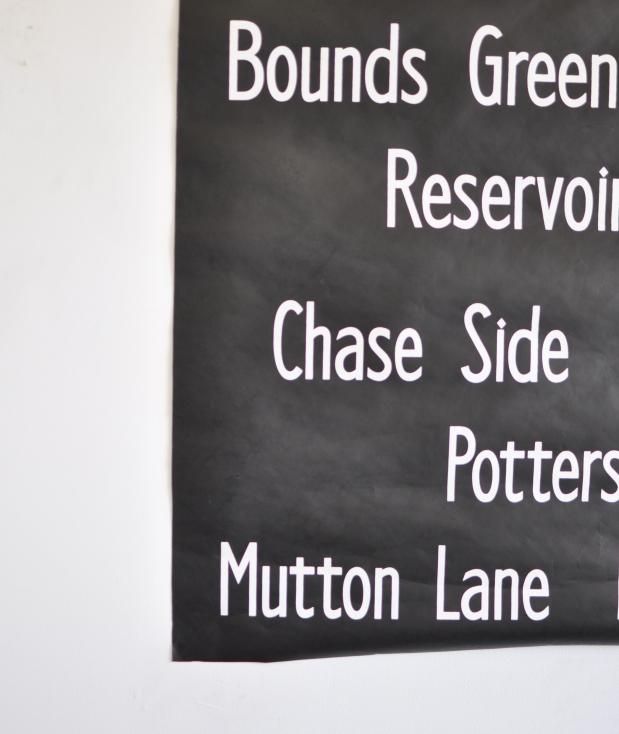 Bounds Green
Reservoir
Chase Side
Potters
Mutton Lane